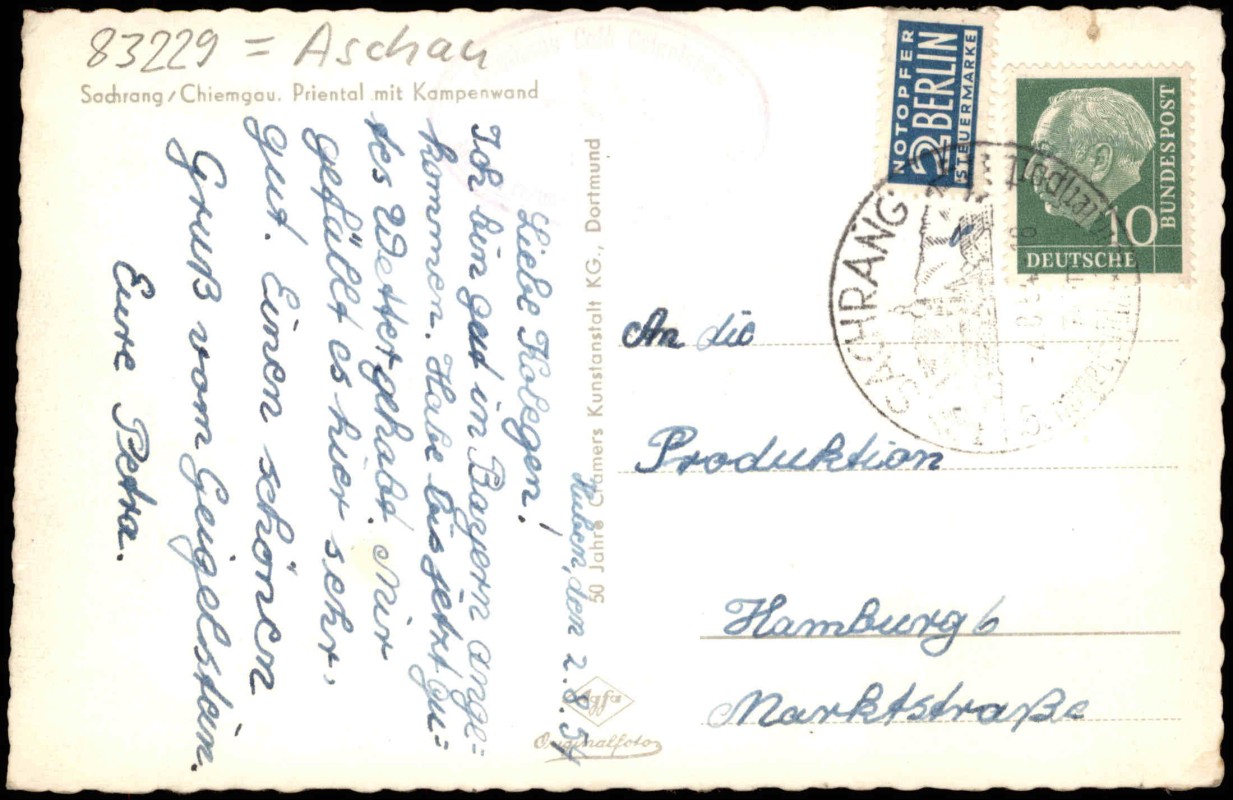 83229 = Aschau
Sachrang/Chiemgau. Priental mit Kampenwand
Huben, den 2.8.54
Liebe Kolegen!
Ich bin gut in Bayern ange=
kommen. Habe bis jetzt gu=
tes Wetter gehabt. Mir
gefällt es hier sehr,
gut. Einen schönen
Gruß vom Geigelstein.
Eure Petra.
50 Jahre Cramers Kunstanstalt KG., Dortmund
Agfa
Originalfoto
NOTOPFER
2 BERLIN
STEUERMARKE
10
DEUTSCHE
BUNDESPOST
SACHRANG
An die
Produktion
Hamburg 6
Marktstraße